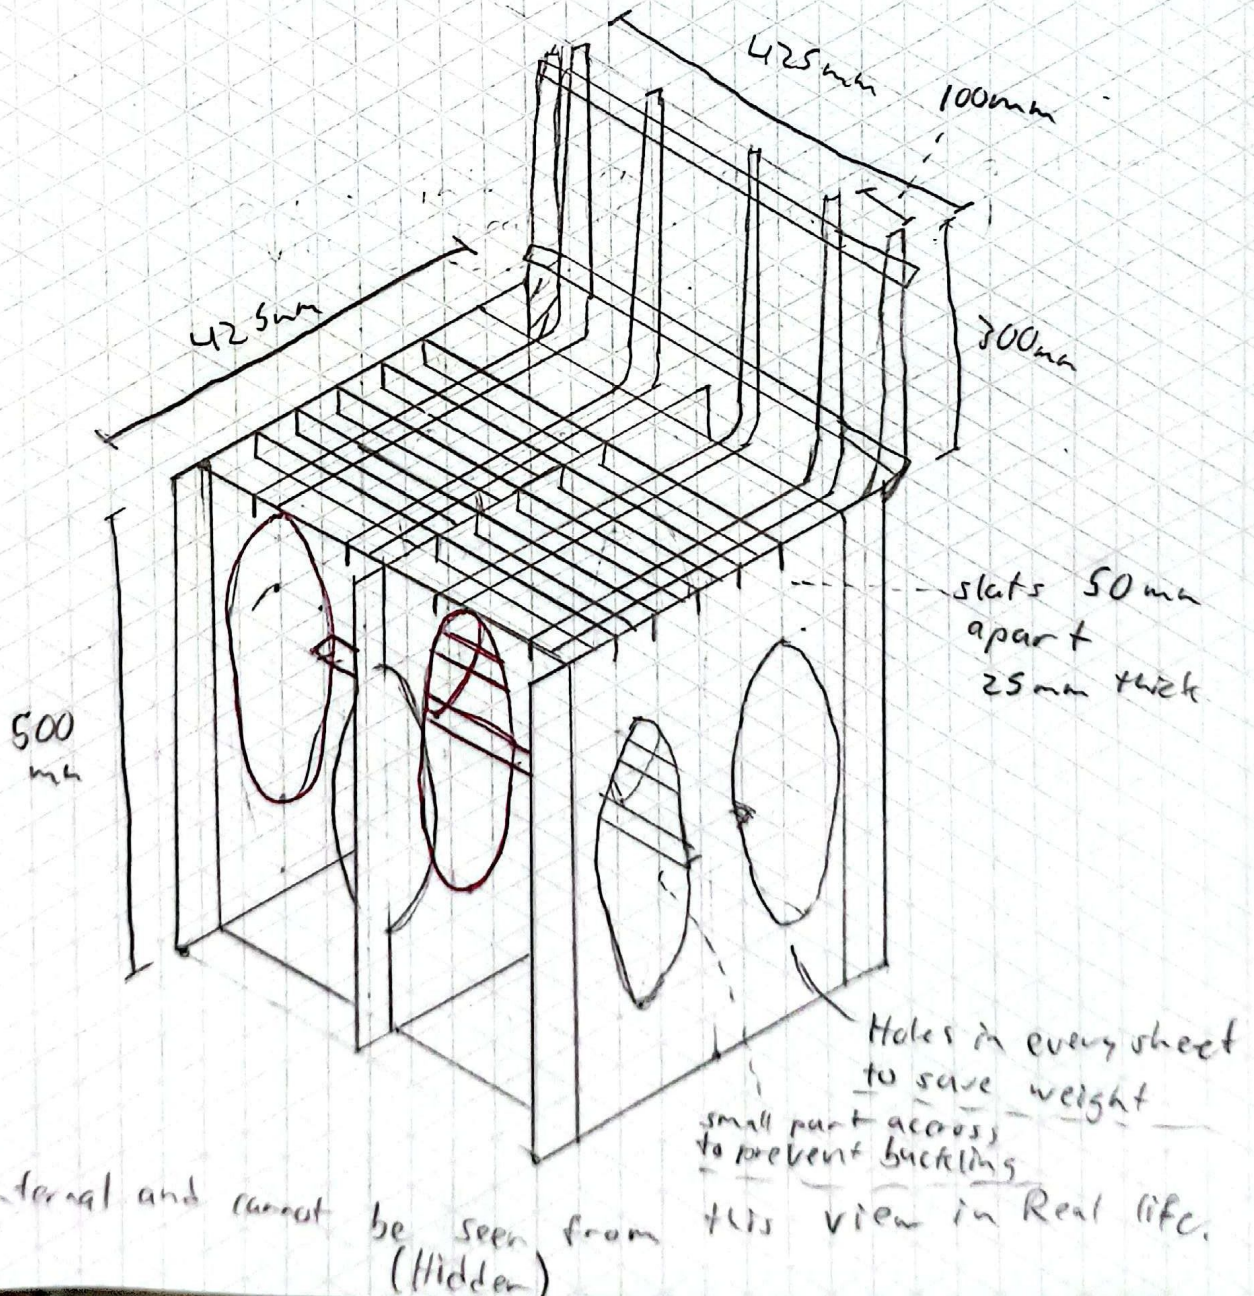 425mm
100mm
425mm
300mm
slats 50mm
apart
25mm thick
500
mm
Holes in every sheet
to save weight
small part accross
to prevent buckling
ternal and cannot be seen from this view in Real life.
(Hidden)